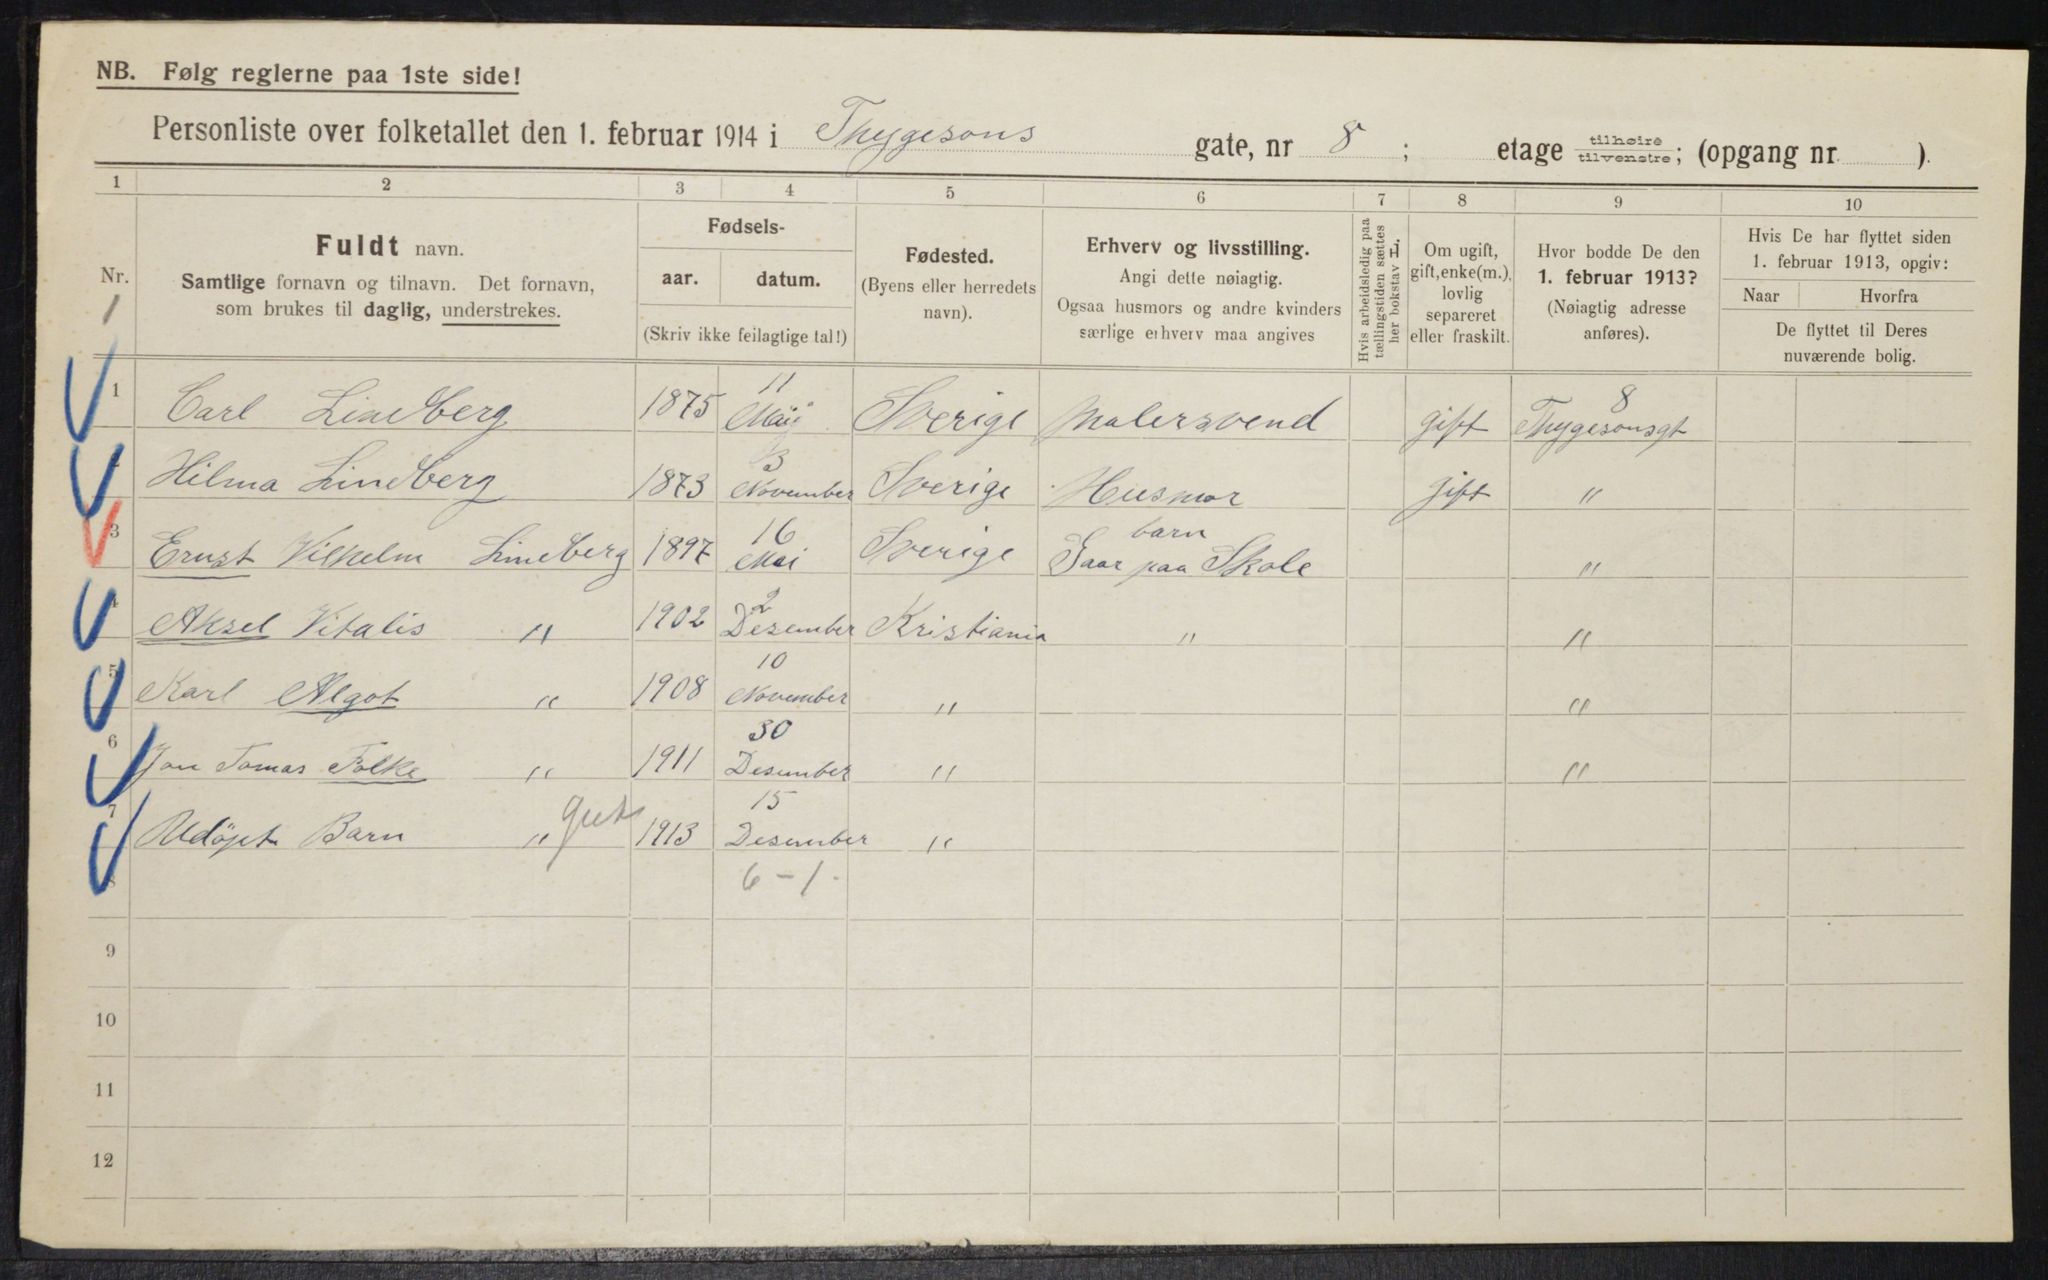 NB. Følg reglerne paa 1ste side!
Personliste over folketallet den 1. februar 1914 i Thygesons gate, nr 8 ; etage tilhøire tilvenstre; (opgang nr. ).
1 2 3 4 5 6 7 8 9 10
Nr. Fuldt navn. Samtlige fornavn og tilnavn. Det fornavn, som brukes til daglig, understrekes.
Fødsels- aar. datum. (Skriv ikke feilagtige tal!)
Fødested. (Byens eller herredets navn).
Erhverv og livsstilling. Angi dette nøiagtig. Ogsaa husmors og andre kvinders særlige erhverv maa angives
Hvis arbeidsledig paa tællingstiden sættes her bokstav L
Om ugift, gift, enke(m.), lovlig separeret eller fraskilt.
Hvor bodde De den 1. februar 1913? (Nøiagtig adresse anføres).
Hvis De har flyttet siden 1. februar 1913, opgiv: Naar Hvorfra De flyttet til Deres nuværende bolig.
1
1 Carl Lindberg 1875 11 Maij Sverige Malersvend gift Thygesonsgt 8
2 Hilma Lindberg 1873 3 November Sverige Husmor gift "
3 Ernst Vilhelm Lindberg 1897 16 Mai Sverige barn Gaar paa Skole "
4 Aksel Vitalis " 1902 2 Dezember Kristiania " "
5 Karl Algot " 1908 10 November " "
6 Jon Tomas Folke " 1911 30 Desember " "
7 Udöpt Barn " gut 1913 15 Desember "
8 6-1.
9
10
11
12